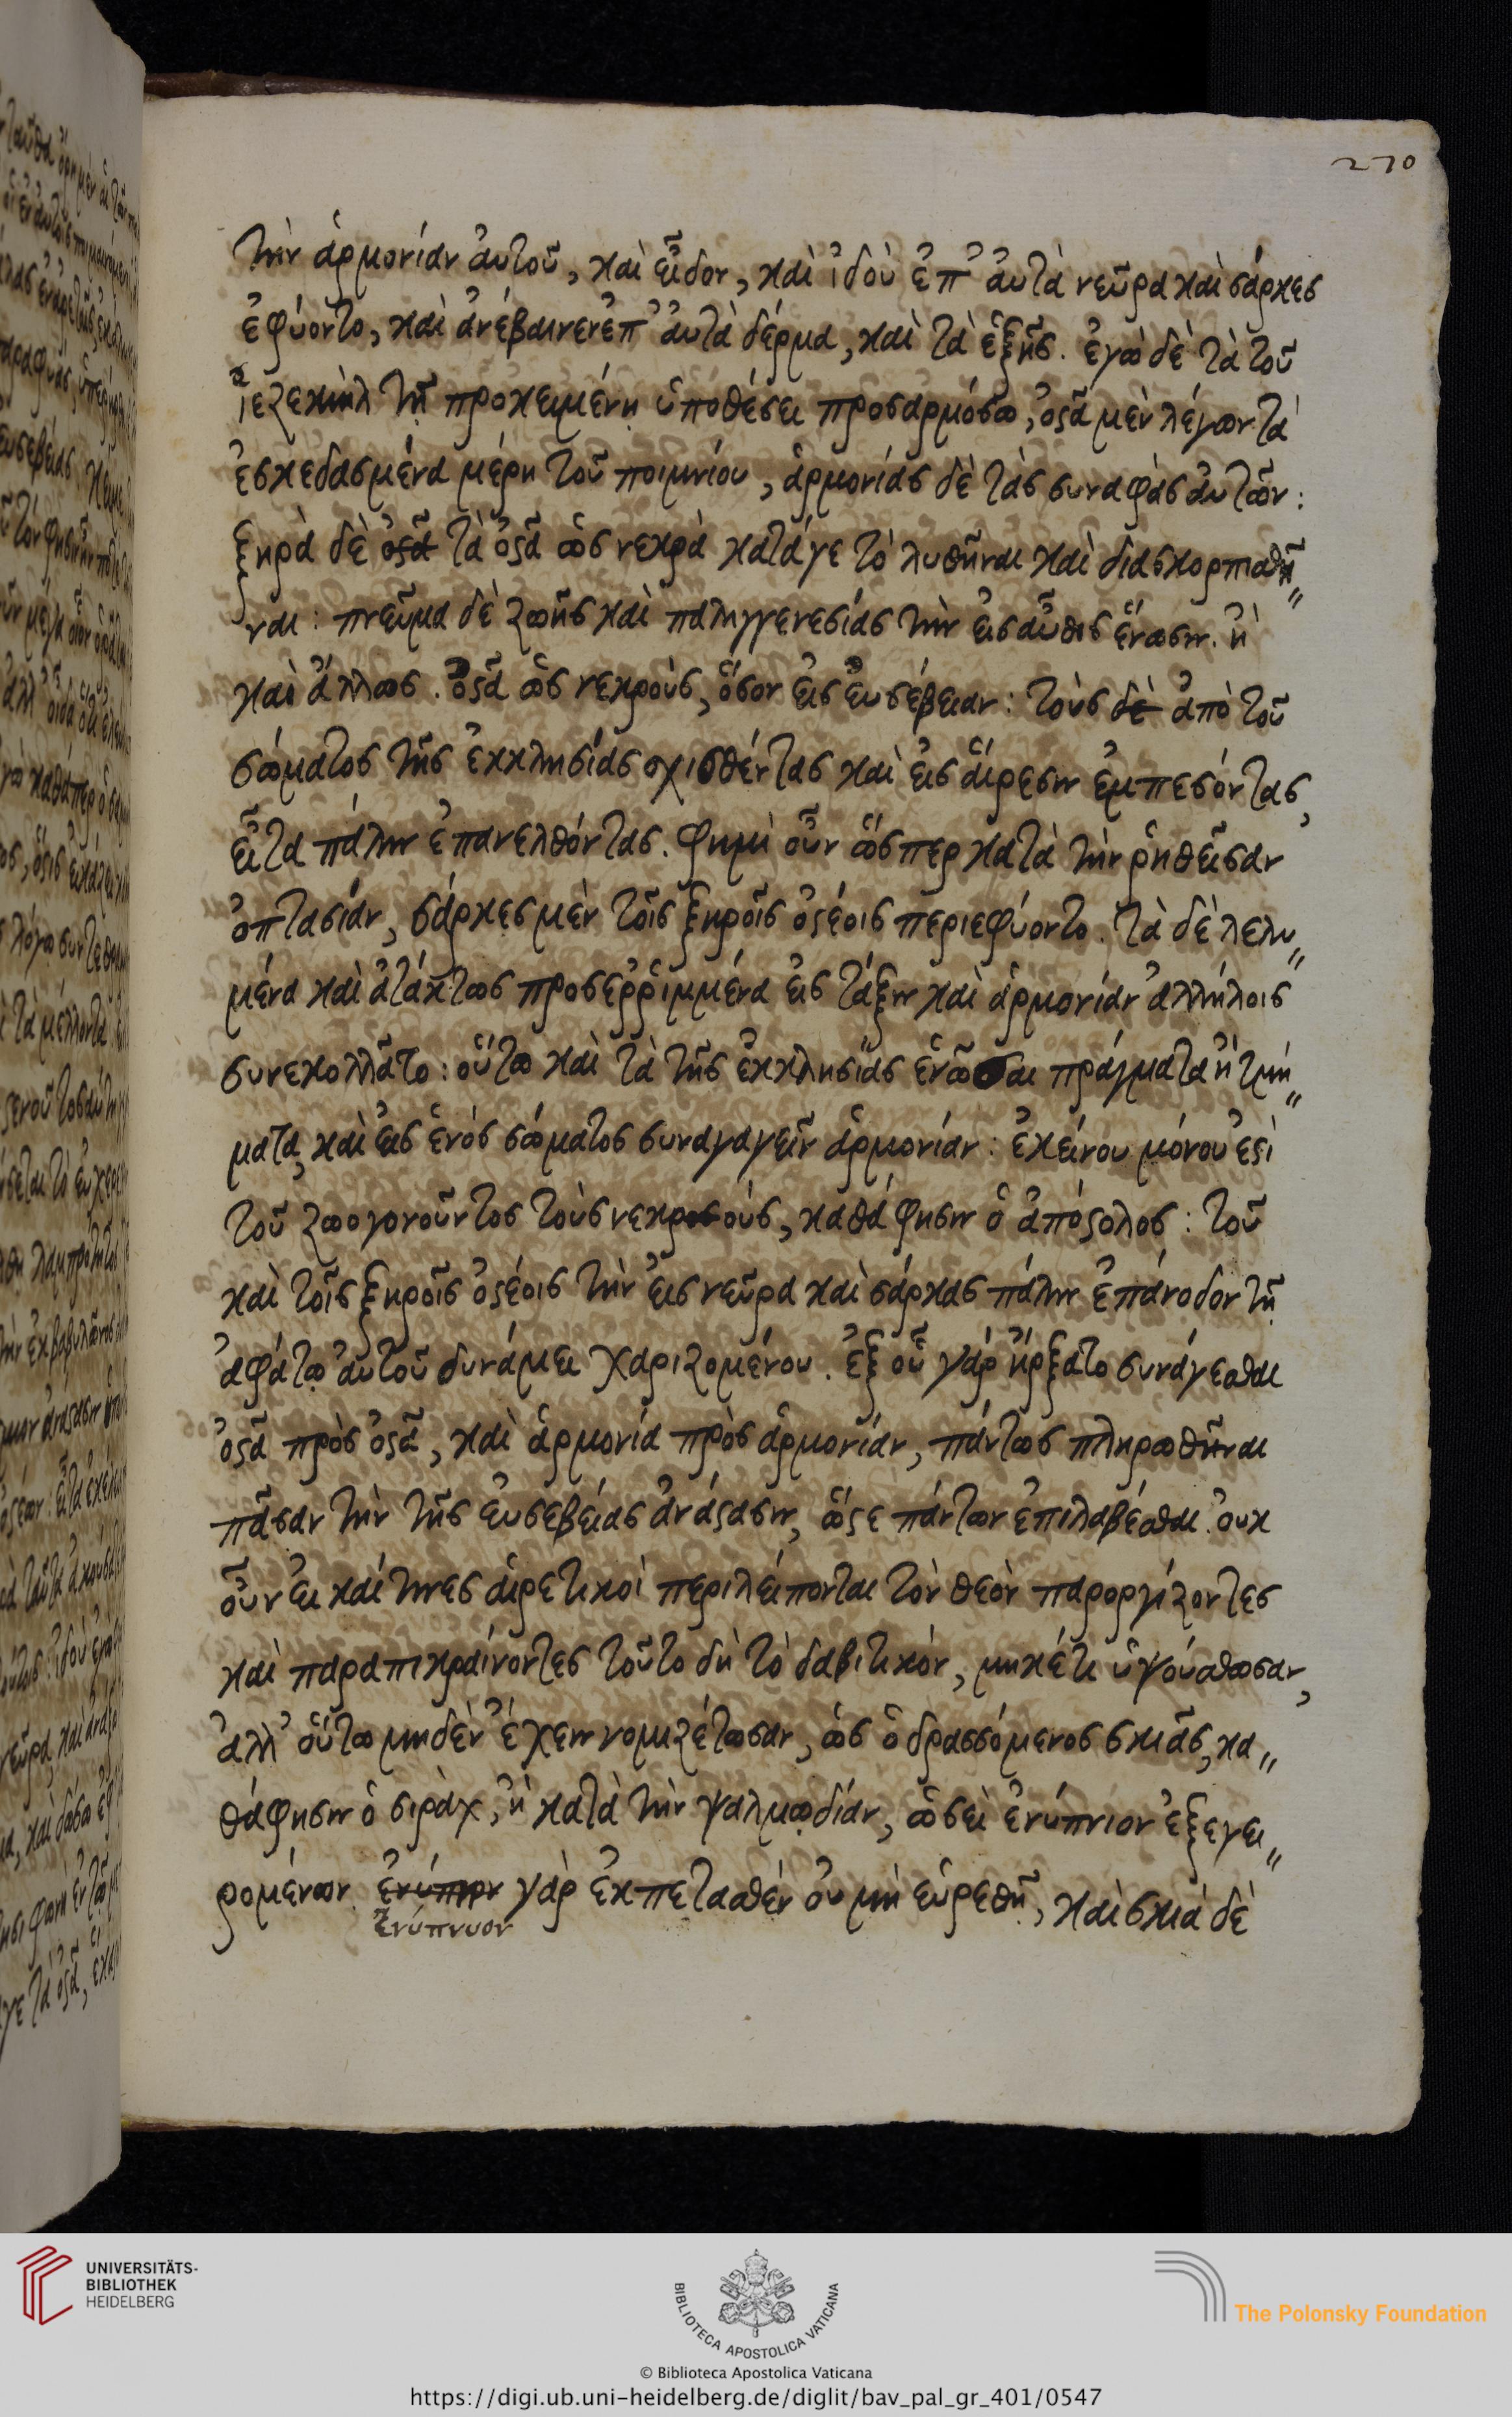 270
τὴν ἁρμονίαν αὐτοῦ, καὶ εἶδον, καὶ ἰδοὺ ἐπ' αὐτὰ νεῦρα καὶ σάρκες
ἐφύοντο, καὶ ἀνέβαινεν ἐπ' αὐτὰ δέρμα, καὶ τὰ ἑξῆς. ἐγὼ δὲ τὰ τοῦ
ἰεζεκιὴλ τῇ προκειμένῃ ὑποθέσει προσαρμόσω, ὀστᾶ μὲν λέγων τὰ
ἐσκεδασμένα μέρη τοῦ ποιμνίου, ἁρμονίας δὲ τὰς συναφὰς αὐτῶν:
ξηρὰ δὲ ὀστᾶ τὰ ὀστᾶ ὡς νεκρὰ κατάγε τὸ λυθῆναι καὶ διασκορπισθῆ〃
ναι: πνεῦμα δὲ ζωῆς καὶ παλιγγενεσίας τὴν εἰσαῦθις ἕνωσιν. ἢ
καὶ ἄλλως. ὀστᾶ ὡς νεκροὺς, ὅσον εἰς εὐσέβειαν: τοὺς δὲ ἀπὸ τοῦ
σώματος τῆς ἐκκλησίας σχισθέντας καὶ εἰς αἵρεσιν ἐμπεσόντας,
εἶτα πάλιν ἐπανελθόντας. φημὶ οὖν ὥσπερ κατὰ τὴν ῥηθεῖσαν
ὀπτασίαν, σάρκες μὲν τοῖς ξηροῖς ὀστέοις περιεφύοντο. τὰ δὲ λελυ〃
μένα καὶ ἀτάκτως προσερῤιμμένα εἰς τάξιν καὶ ἁρμονίαν ἀλλήλοις
συνεκολλᾶτο: οὕτω καὶ τὰ τῆς ἐκκλησίας ἑνῶσαι πράγματα ἢ τμή〃
ματα, καὶ εἰς ἑνὸς σώματος συναγαγεῖν ἁρμονίαν: ἐκείνου μόνου ἐστὶ
τοῦ ζωογονοῦντος τοὺς νεκροσούς, καθά φησιν ὁ ἀπόστολος: τοῦ
καὶ τοῖς ξηροῖς ὀστέοις τὴν εἰς νεῦρα καὶ σάρκας πάλιν ἐπάνοδον τῇ
ἀφάτῳ αὐτοῦ δυνάμει χαριζομένου. ἐξ οὗ γὰρ ἤρξατο συνάγεσθαι
ὀστᾶ πρὸς ὀστᾶ, καὶ ἁρμονία πρὸς ἁρμονίαν, πάντως πληρωθῆναι
πᾶσαν τὴν τῆς εὐσεβείας ἀνάστασιν, ὥστε πάντων ἐπιλαβέσθαι. οὐκ
οὖν εἰ καί τινες αἱρετικοὶ περιλείπονται τὸν θεὸν παροργίζοντες
καὶ παραπικραίνοντες τοῦτο δὴ τὸ δαβιτικόν, μηκέτι ὑψούσθωσαν,
ἀλλ' οὕτω μηδὲν ἔχειν νομιζέτωσαν, ὡς ὁ δρασσόμενος σκιᾶς, κα〃
θάφησιν ὁ σιράχ, ἢ κατὰ τὴν ψαλμῳδίαν, ὡσεὶ ἐνύπνιον ἐξεγει〃
ρομένων. ἐνύπνιον γὰρ ἐκπετασθὲν οὐ μὴ εὑρεθῇ, καὶ σκιὰ δὲ
ἐνύπνυον
UNIVERSITÄTS-
BIBLIOTHEK
HEIDELBERG
BIBLIOTECA APOSTOLICA VATICANA
The Polonsky Foundation
© Biblioteca Apostolica Vaticana
https://digi.ub.uni-heidelberg.de/diglit/bav_pal_gr_401/0547